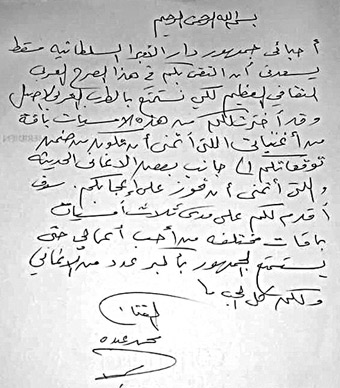 بسم الله الرحمن الرحيم
أحبائي جمهور دار الأوبرا السلطانية مسقط
يسعدني أن التقي بكم في هذا الصرح العربي
الثقافي العظيم لكي نستمتع بالطرب العربي الأصيل
وقد اخترت لكم من هذه الأمسيات باقة
من أغنياتي اللتي أتمنى أن تكون من ضمن
توقعاتكم إلى جانب بعض الاغاني الحديثة
واللتي أتمنى أن تحوز على إعجابكم. سوف
أقدم لكم على مدى ثلاث أمسيات
باقات مختلفه من أحب أعمالي حتى
يستمتع الجمهور بأكبر عدد من الاغاني
ولكم كل الحب
الفنان
محمد عبده